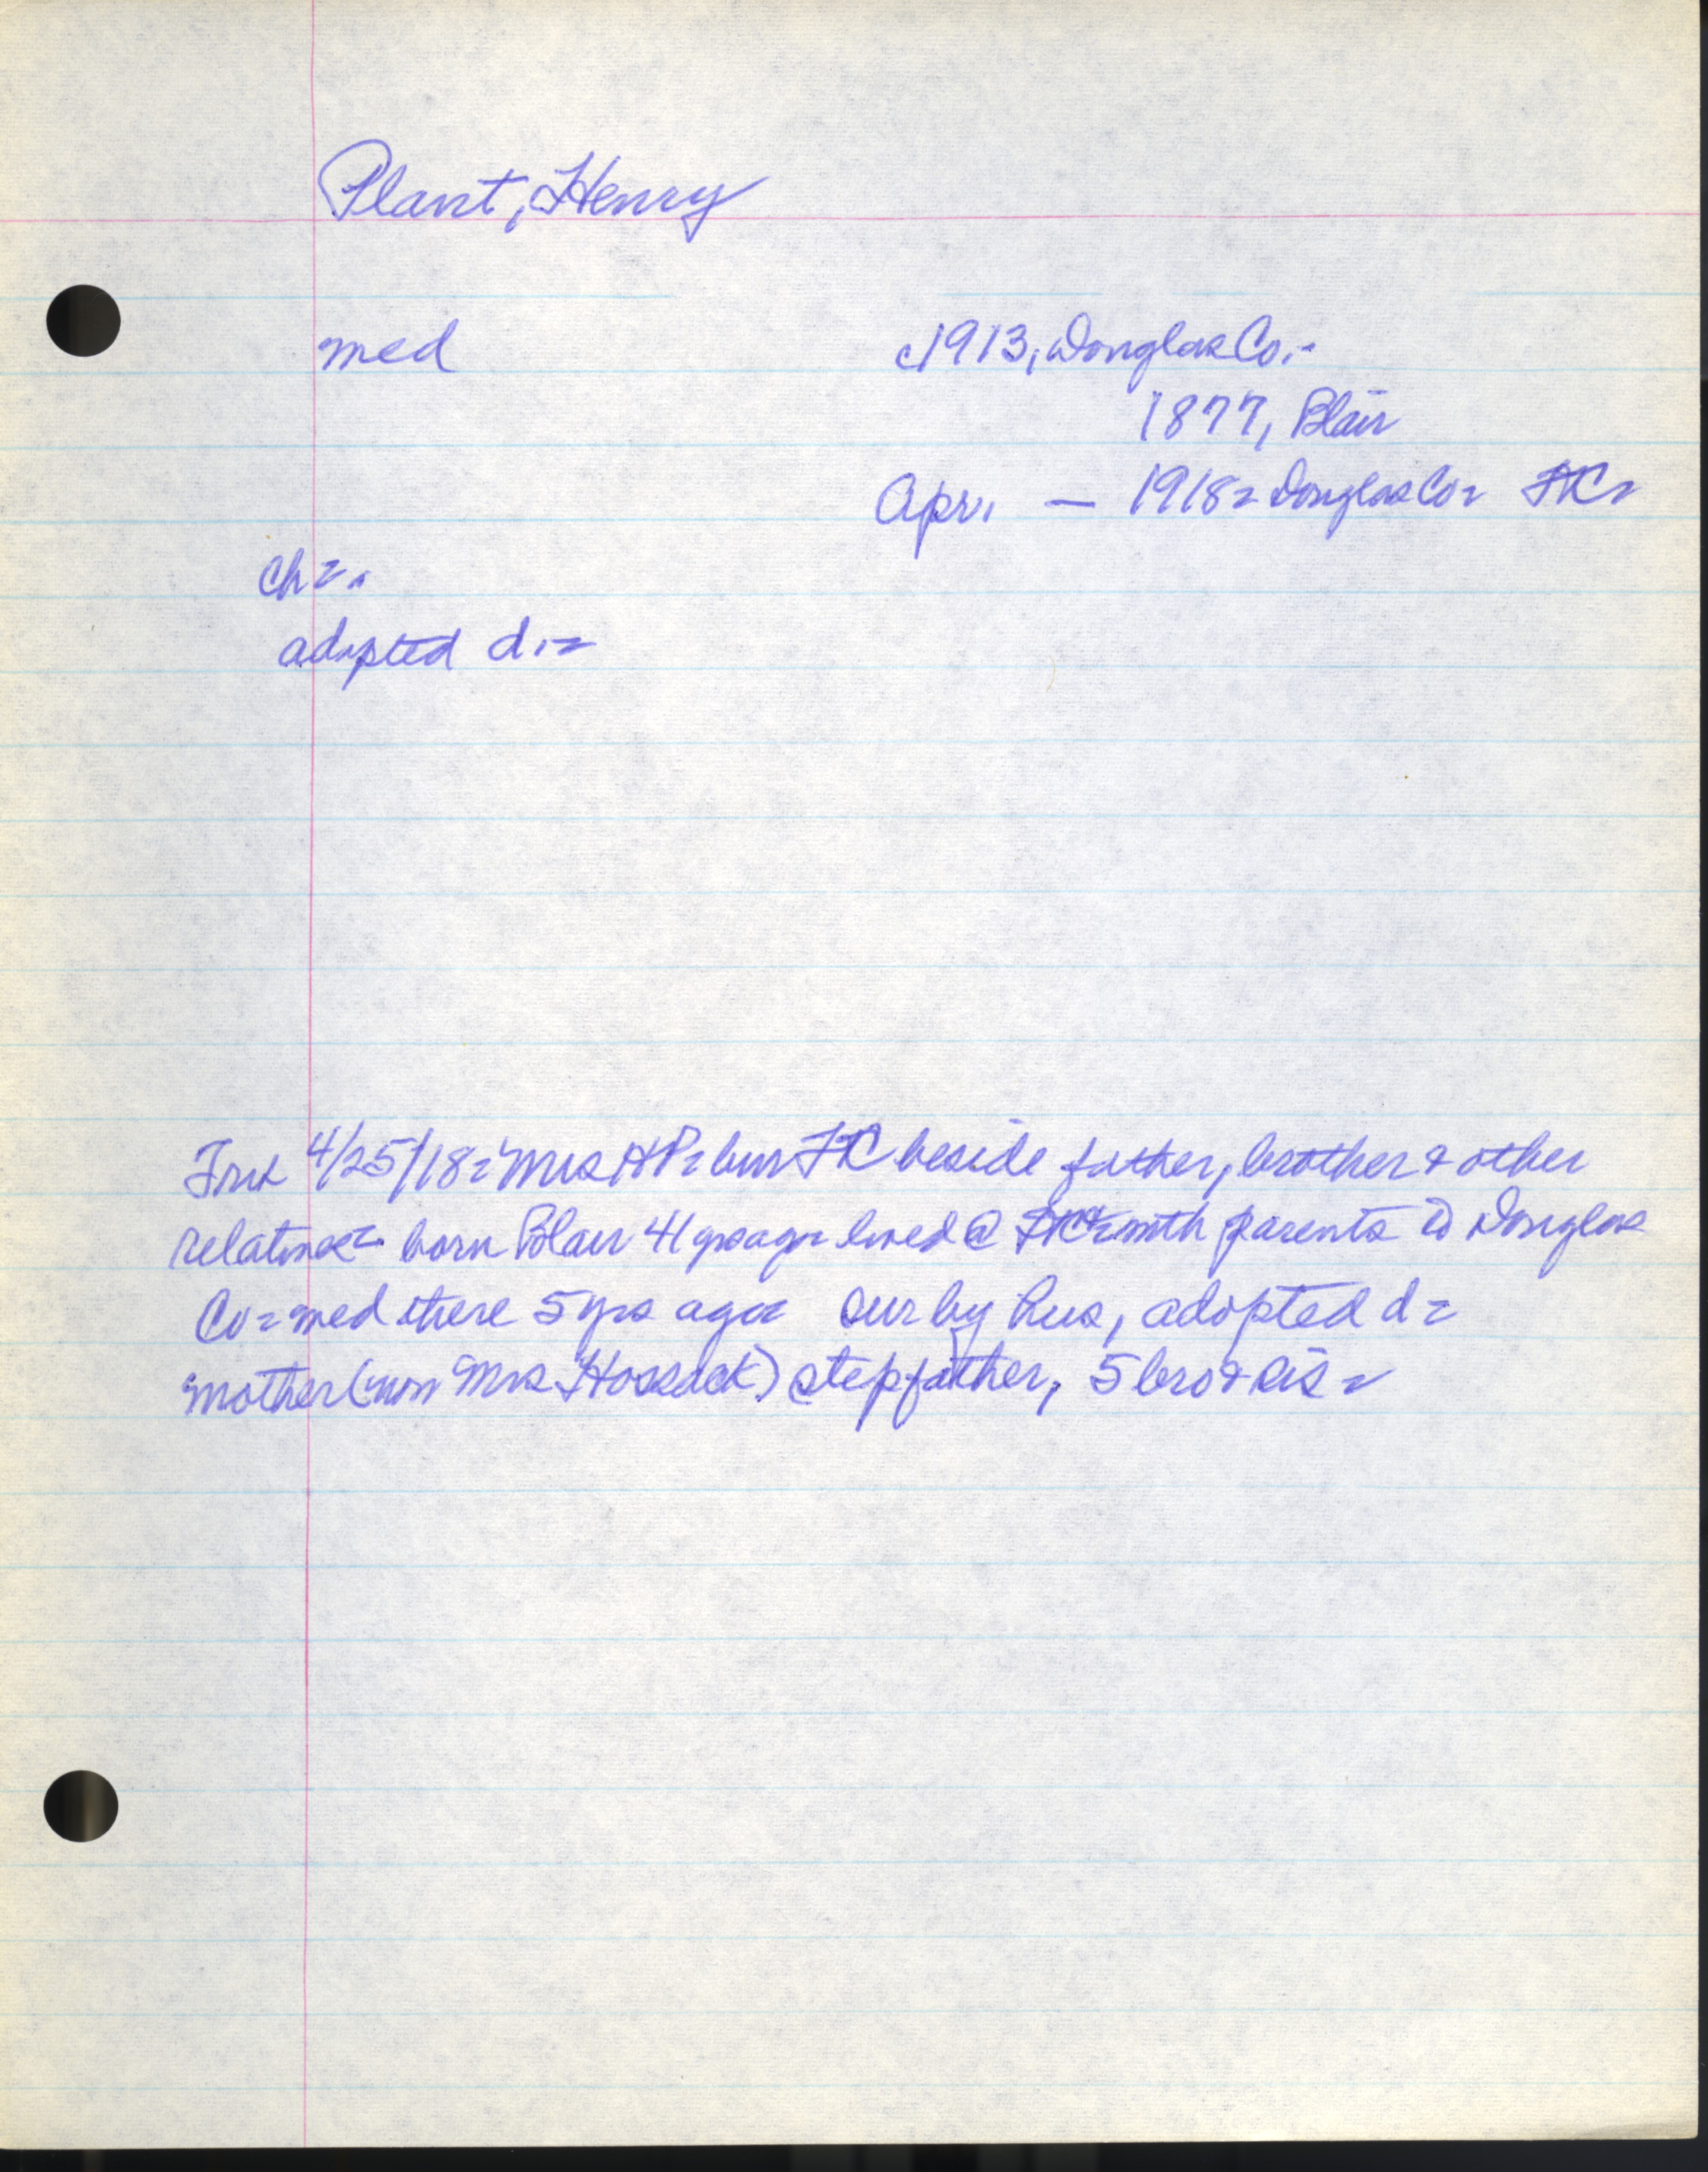 Plant, Henry
med c1913, Douglas Co.-
1877, Blair
Apr. — 1918- Douglas Co- FtC-
ch-.
adopted d.-
4/25/18- Mrs HP- bur FtC beside father, brother & other
relatives- born Blair 41 yrs ago- lived @ FtC- with parents to Douglas
Co- med there 5 yrs ago- sur by hus, adopted d-
mother (now Mrs Hossack) stepfather, 5 bro & sis-